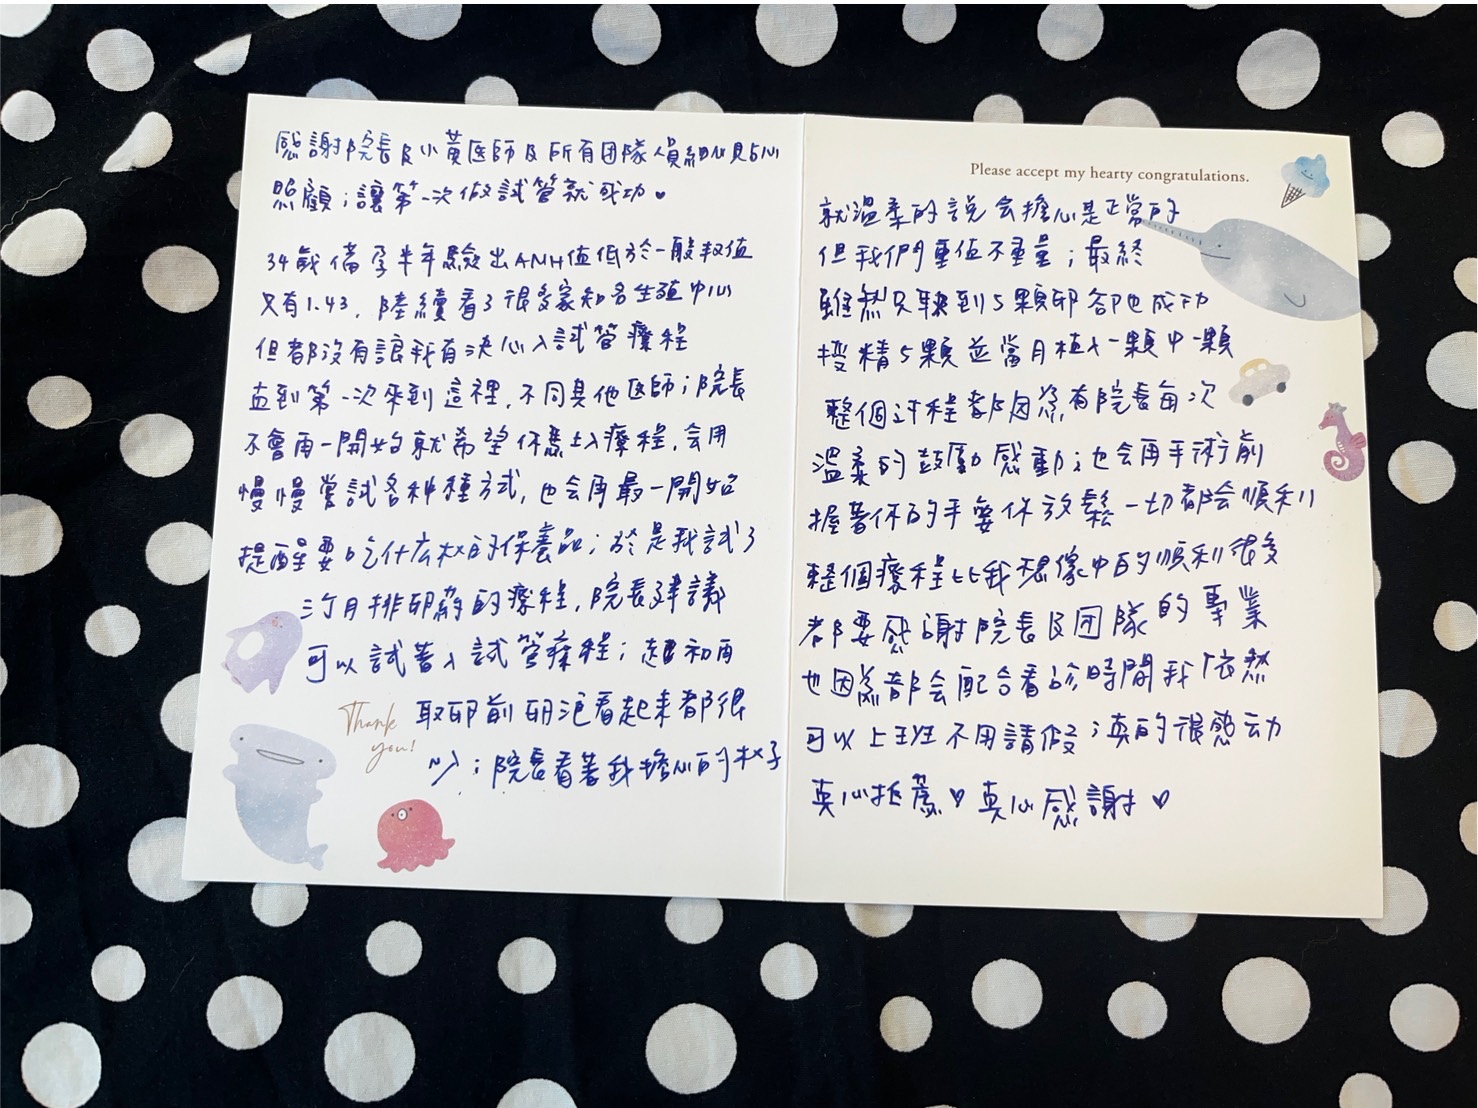 感謝院長及小黃医師及所有团隊人員細心貼心
照顧；讓第一次做試管就成功♥
34歲備孕半年驗出AMH值低於一般数值
只有1.43，陸續看了很多家知名生殖中心
但都沒有讓我有決心入試管療程
直到第一次來到這裡，不同其他医師；院長
不會再一開始就希望你馬上入療程，会用
慢慢嘗試各种種方式，也会再最一開始
提醒要吃什么樣的保養品；於是我試了
三个月排卵葯的療程，院長建議
可以試著入試管療程；起初再
取卵前卵泡看起來都很
少；院長看著我擔心的樣子
Thank
you!
Please accept my hearty congratulations.
就溫柔的說会擔心是正常的
但我們重值不重量；最終
雖然只取到5顆卵卻也成功
授精5顆並當月植入一顆中一顆
整個过程都因為有院長每次
溫柔的鼓勵感動；也会再手術前
握著你的手要你放鬆一切都会順利
整個療程比我想像中的順利很多
都要感謝院長及团隊的專業
也因為都会配合看診時間我依然
可以上班不用請假；真的很感动
真心推薦♥真心感謝♥